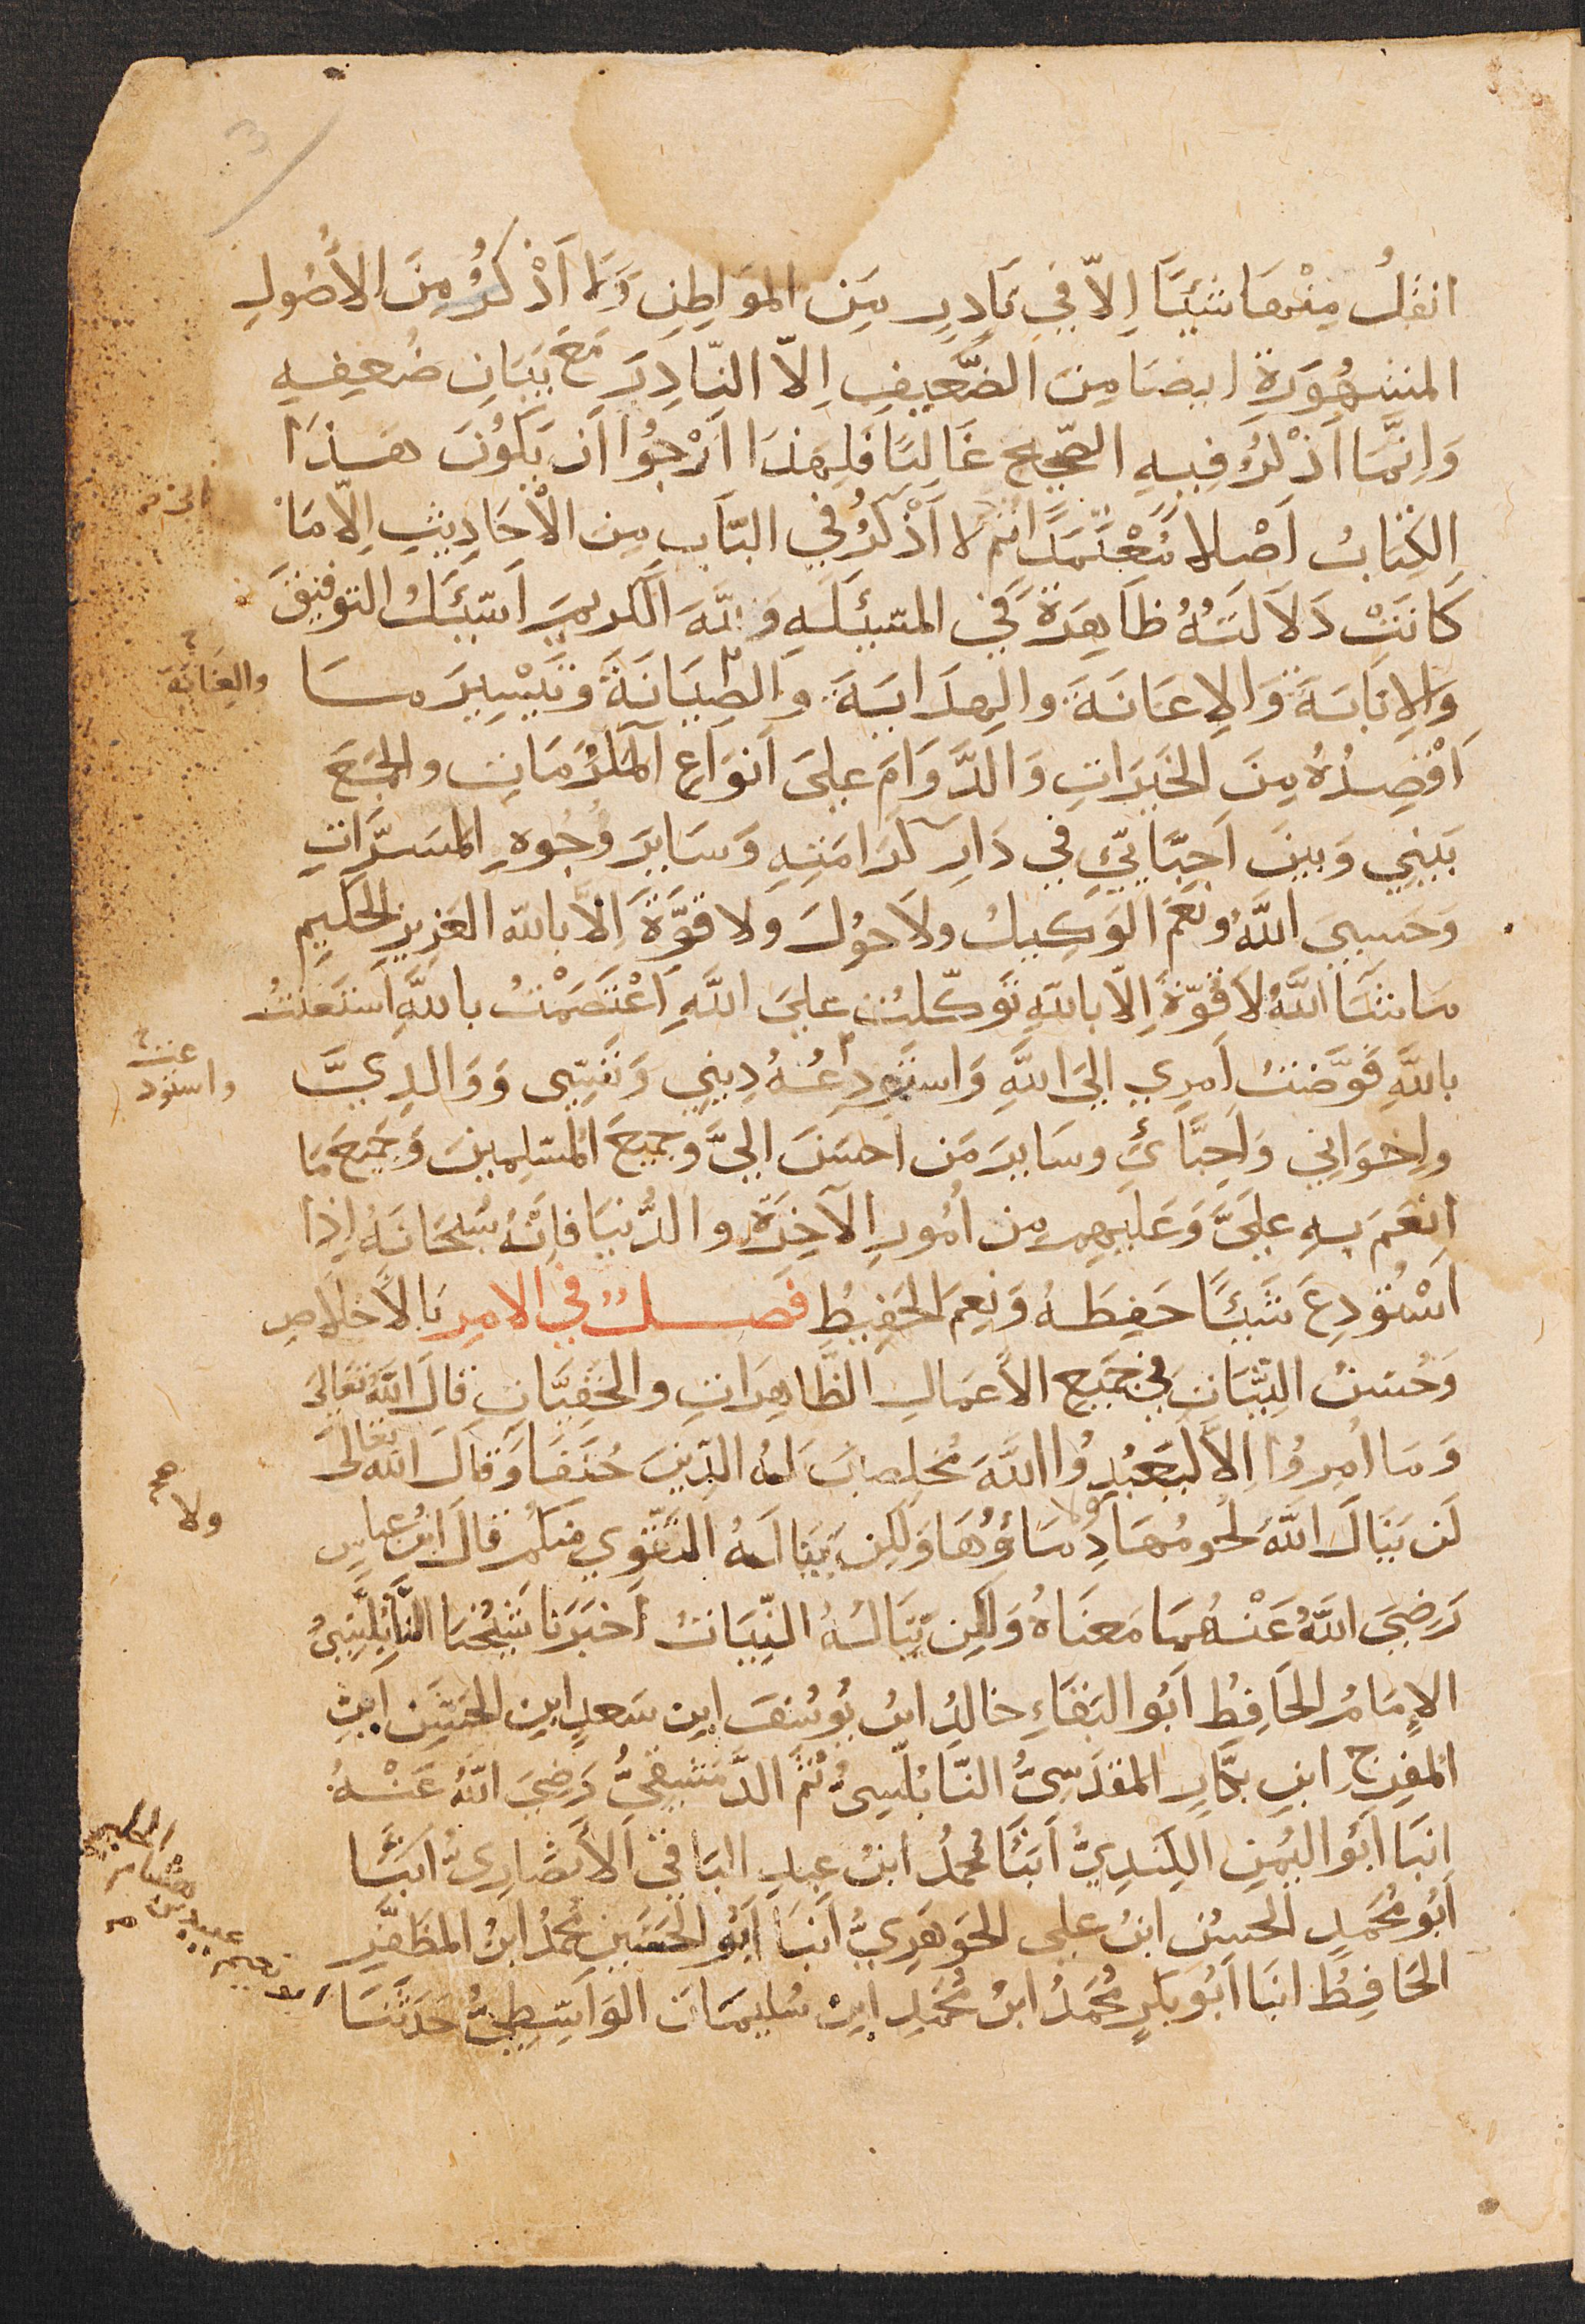 انقلُ مِنْهَا شَيْئًا اِلّا فِي نَادِرٍ مِن المَوَاطِنِ وَلا اَذْكُرُ مِنَ الأُصُولِ
المشهُورَةِ ايضا مِنَ الضَّعِيفِ اِلاّ النّادِرَ مَعَ بَيَانِ ضُعفِهِ
وَاِنَّمَا اَذْكُرُ فِيهِ الصَّحِيحَ غَالِبًا فَلِهَذَا اَرْجُوا اَن يَكُونَ هَذَا
الكِتَابُ اَصْلا مُعْتَمَدًا ثُم لا اَذْكُرُ فِي البَاب مِن الأَحَادِيثِ اِلّا مَا
كَانَتْ دَلاَلَتُهُ ظَاهِرَةً فِي المَسْئَلَهِ وَاللهَ الكَرِيمَ اَسْئَلُ التوفيقَ
وَالاِنَابَةَ وَالاِعَانَةَ وَالهِدَايَةَ وَالصِّيَانَةَ وَتَيْسِيرَ مَا
اَقْصِدُهُ مِنَ الخَيرَاتِ وَالدَّوَامَ عَلىَ اَنوَاعِ المَكْرُمَاتِ والجَمعَ
بَينِي وَبينَ اَحِبَّائِي فِي دَارِ كَرَامَتِهِ وَسَايِرَ وُجُوهِ المَسَرَّاتِ
وَحَسبِيَ اللَّهُ ونِعمَ الوَكِيلُ ولاَ حَولَ وَلا قوَّةَ اِلاَّ بالله العَزِيزِ الحَكِيمِ
مَا شَا اللَّهُ لا قُوّةَ اِلّا باللهِ تَوكّلتُ عَلىَ اللَّهِ اَعْتَصَمْتُ باللَّهِ اَستَعَنتُ
باللَّهِ فَوَّضتُ اَمرِي اِلىَ اللَّهِ وَاستَودِعُهُ دِينِي وَنَفسِى وَوَالِدِيَّ
واِخوَانِي وَاَحِبَّائي وسَايرَ مَن اَحسَنَ اِليَّ وَجمِيعَ المُسْلِمِينَ وَجَمِيعَ مَا
اَنعَمَ بِهِ عَلَيَّ وَعَليهِم مِن اُمُورِ الآخِرَةِ وَالدُّنيَا فَاِنَّهُ سُبحَانَهُ اِذَا
اَسْتُودِعَ شَيئًا حَفِظَهُ وَنِعمَ الحَفِيظِ فَصلٌ فِي الامرِ بَالاِخلاَصِ
وَحُسنِ النِيَّاتِ فِي جَمِيعِ الأَعمَالِ الظَّاهِرَاتِ وَالخَفِيَّاتِ قَالَ اللَّهُ تَعَالىَ
وَمَا اُمِرُوا اِلاَّ لِيَعبُدُوا اللَّهَ مُخلِصِينَ لَهُ الدِّينَ حُنَفَا وَقَالَ اللّٰه تعَالىَ
لَن يَنَالَ اللَّهَ لُحومُهَا وَلا دِمَاؤُهَا وَلَكِن يَنَالُهُ التَقوي مِنكُم قَالَ ابنُ عباسٍ
رَضِيَ اللَّهُ عَنْهُمَا مَعنَاهُ وَلَكِن يَنَالُهُ النِّيَاتُ اَخبَرَنا شَيخُنَا
الاِمَامُ الحَافِظُ اَبُو البَقَاءِ خَالِدُ ابنُ يُوسُفَ ابنِ سَعدٍ ابنِ الحَسَنِ ابنِ
المُفَرِّجِ ابنِ بَكَّارِ المَقدَسِيُّ النّابُلُسِيُّ ثُمَّ الدَّمَشقِيُّ رَضِيَ اللَّهُ عَنْهُ
انبَا اَبُو اليُمنِ الكِندِيُّ اَنبَا مُحمدُ ابنُ عَبدِ البَاقِي الأَنصَارِيُّ اَنبَا
اَبُو مُحَمدٍ الحسنُ ابنُ علي الجَوهَرِيُّ اَنبَا اَبُو الحُسَينِ مُحمدُ ابنُ المظَفَّرِ
الحَافِظُ انبَا اَبُو بَكرٍ مُحَمدُ ابنُ مُحَمدِ ابنِ سُلَيمَانَ الوَاسِطِيُّ حَدَثَنَا
والعنَانَة
عنه
واستود
ولا
صح
ابو نعيم عبيد بن هشام الحلبي